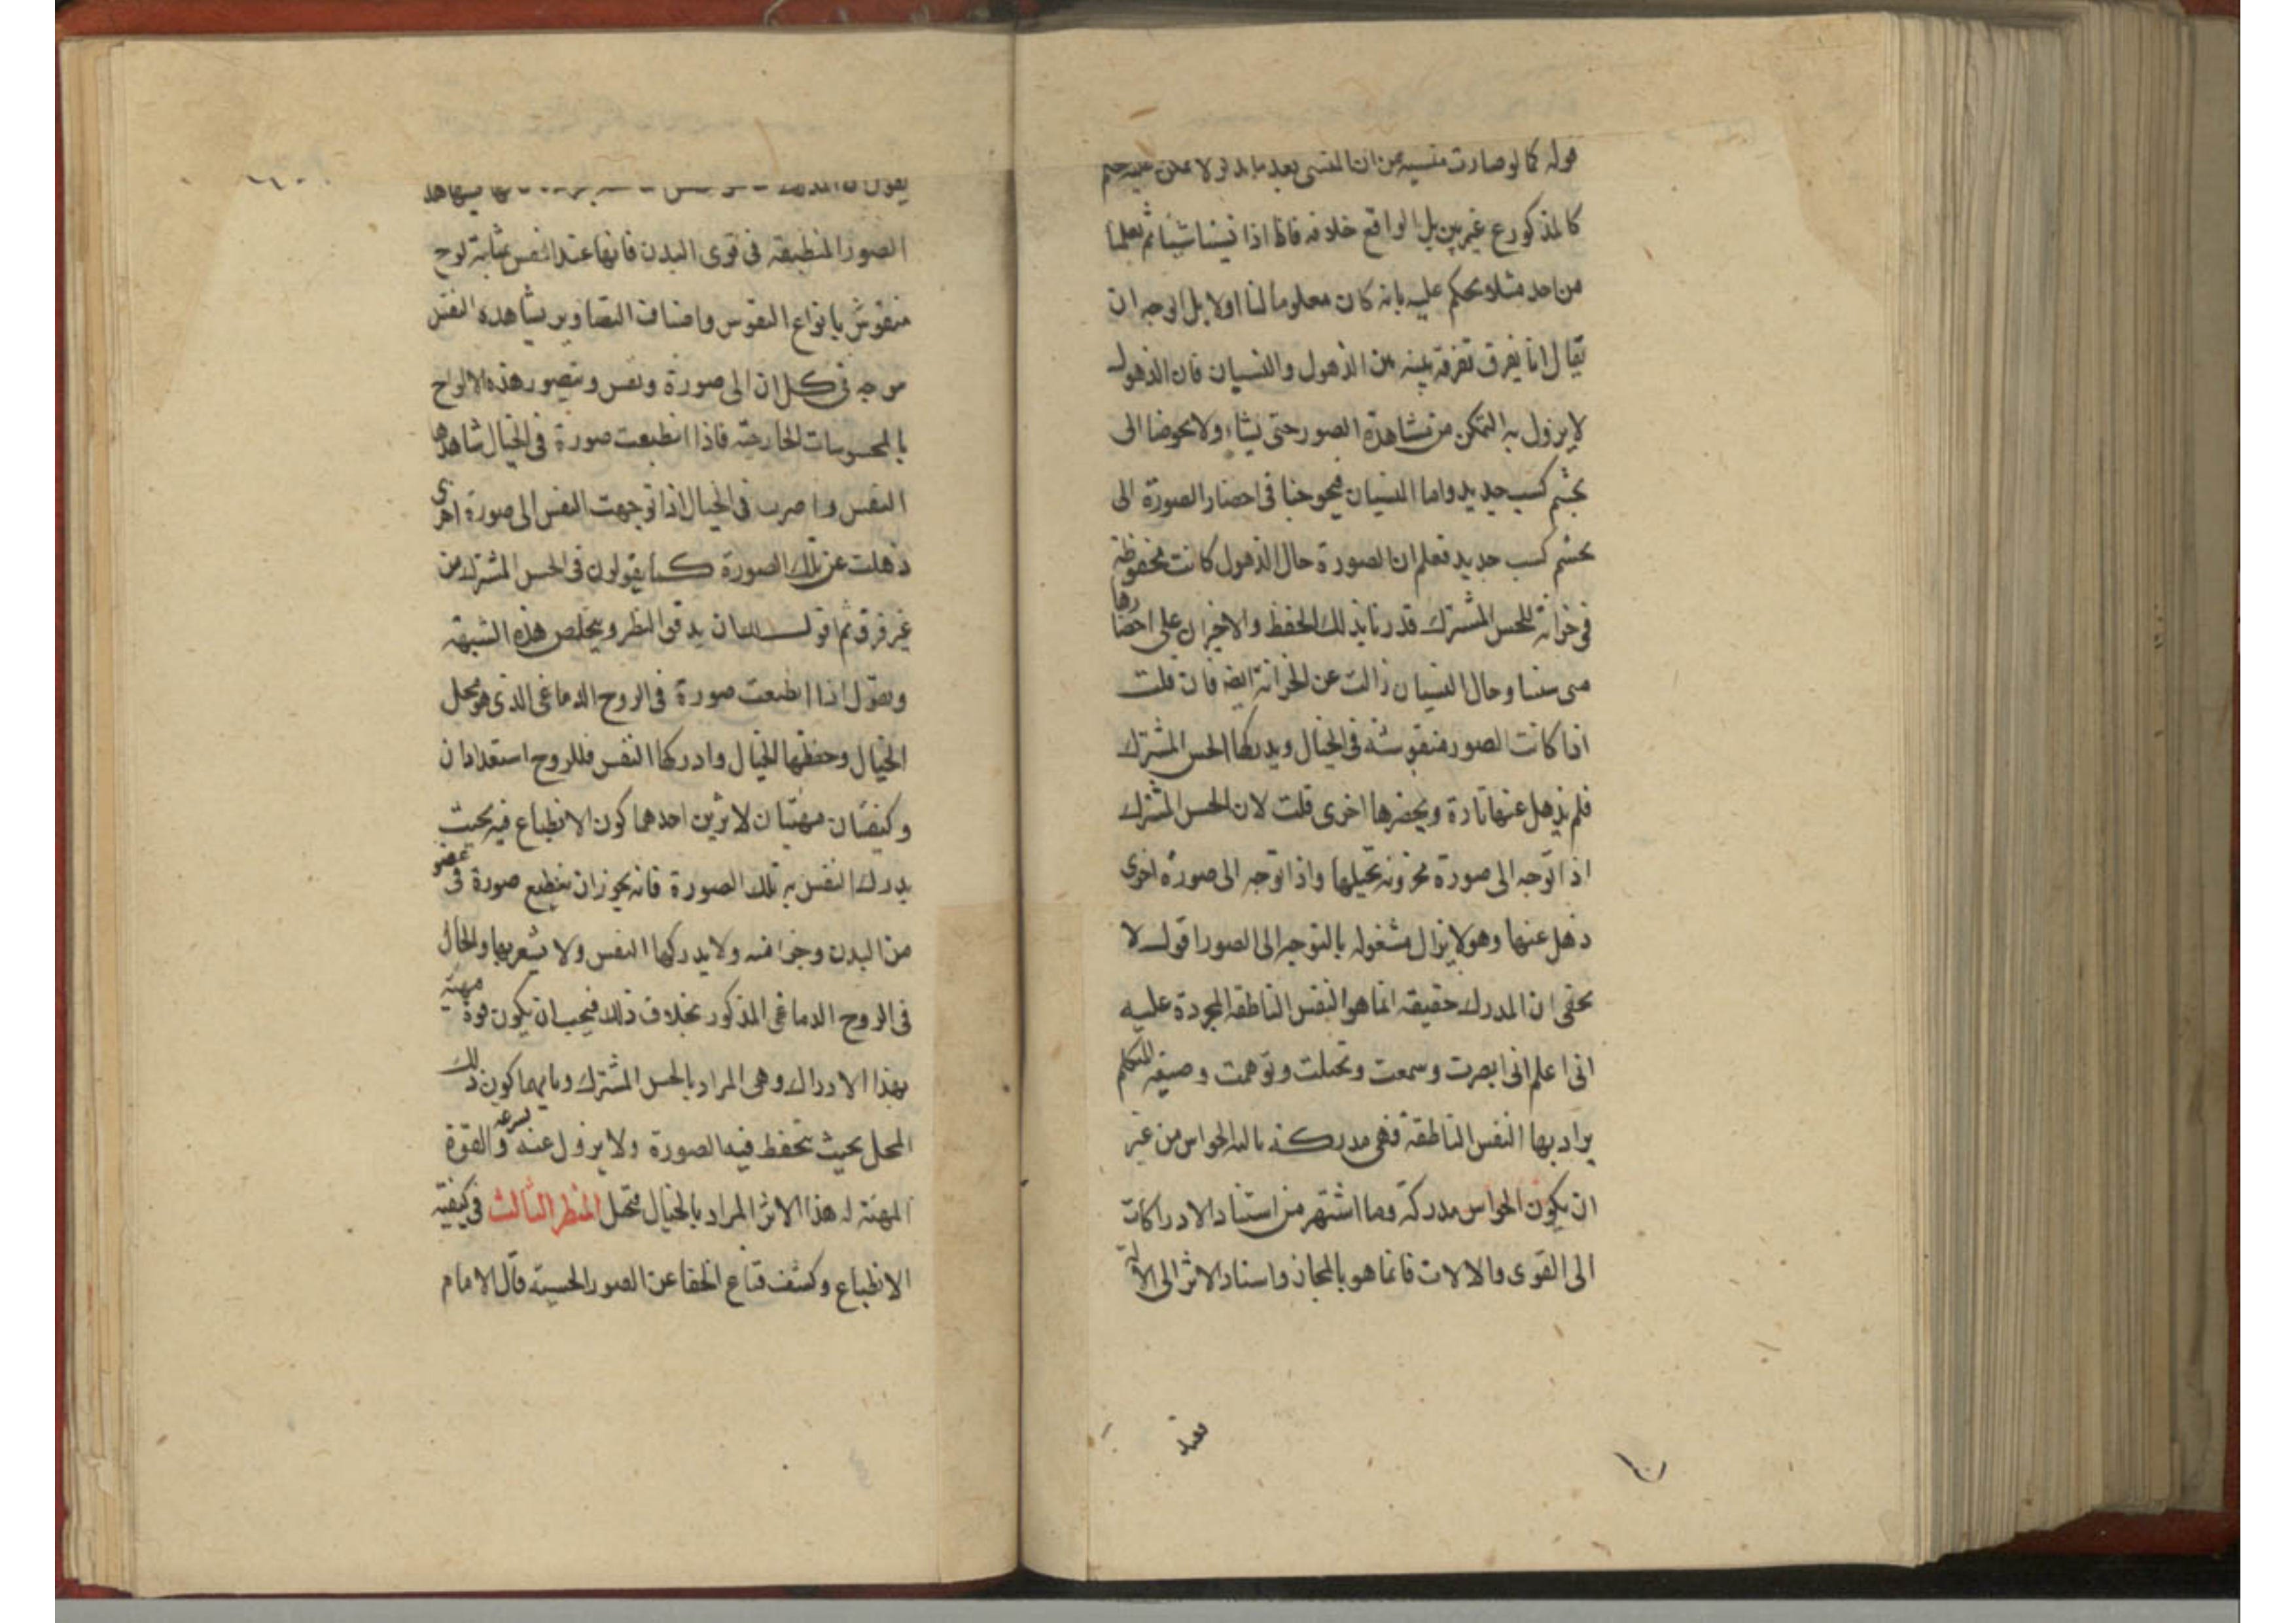 قوله كما لو صارت منسية من ان المنسى بعد ما يدلو لا يمكن عليه حكم
كالمذكور ع غير بين بل الواقع خلافه فانا اذا نسينا شيئا ثم تعلمنا
من احد مثلا ونحكم عليه بانه كان معلوما لنا اولا بل الوجه ان
يقال انا نفرق تفرقة بينة بين الذهول والنسيان فان الذهول
لا يزول به التمكن من مشاهدة الصور حتى نشاء ولا يحوجنا الى
تجشم كسب جديد واما النسيان فيحوجنا فى احضار الصورة الى
تجشم كسب جديد فعلم ان الصورة حال الذهول كانت محفوظة
فى خزانة للحس المشترك قدرنا بذلك الحفظ والاخزان على احضارها
متى شئنا وحال النسيان زالت عن الخزانة ايضا فان قلت
اذا كانت الصور منقوشة فى الخيال ويدركها الحس المشترك
فلم يذهل عنها تارة ويحضرها اخرى قلت لان الحس المشترك
اذا توجه الى صورة مخزونة تخيلها واذا توجه الى صورة اخرى
ذهل عنها وهو لا يزال مشغوله بالتوجه الى الصور اقول لا
يخفى ان المدرك حقيقة انما هو النفس الناطقة المجردة عليه
انى اعلم انى ابصرت وسمعت وتخيلت وتوهمت وصيغة المتكلم
يراد بها النفس الناطقة فهى مدركة بالة الحواس من غير
ان يكون الحواس مدركة وما اشتهر من استناد الادراكات
الى القوى والالات فانما هو بالمجاز واسناد الاثر الى الالة
يقول ان المدرك
الصور المنطبقة فى قوى البدن فانها عند النفس بمثابة لوح
منقوش بانواع النقوس واصناف التصاوير يشاهده النفس
موجه فى كل ان الى صورة ونقس ويتصور هذه الالواح
بالمحسوسات الخارجية فاذا انطبعت صورة فى الخيال شاهدها
النفس و فى الخيال اذا توجهت النفس الى صورة اخرى
ذهلت عن تلك الصورة كما يقولون فى الحس المشترك من
غير فرق ثم اقول ان يدقق النظر ويخلص هذه الشبهة
ونقول اذا انطبعت صورة فى الروح الدماغى الذى هو محل
الخيال وحفظها الخيال وادركها النفس فللروح استعدادان
وكيفيتان مهيتان لاثرين احدهما كون الانطباع فيه بحيث
يدرك النفس به تلك الصورة فانه يجوز ان ينطبع صورة فى عضو
من البدن وجزء منه ولا يدركها النفس ولا يشعر بها والحال
فى الروح الدماغى المذكور بخلاف ذلك فيجب ان يكون قوة مهيئة
بهذا الادراك وهى المراد بالحس المشترك وثانيهما كون ذلك
المحل بحيث تحفظ فيه الصورة ولا يزول عنه بسرعة والقوة
المهيئة له هذا الاثر المراد بالخيال فتحمل المنظر الثالث فى كيفية
الانطباع وكشف قناع الخفا عن الصور الحسية قال الامام